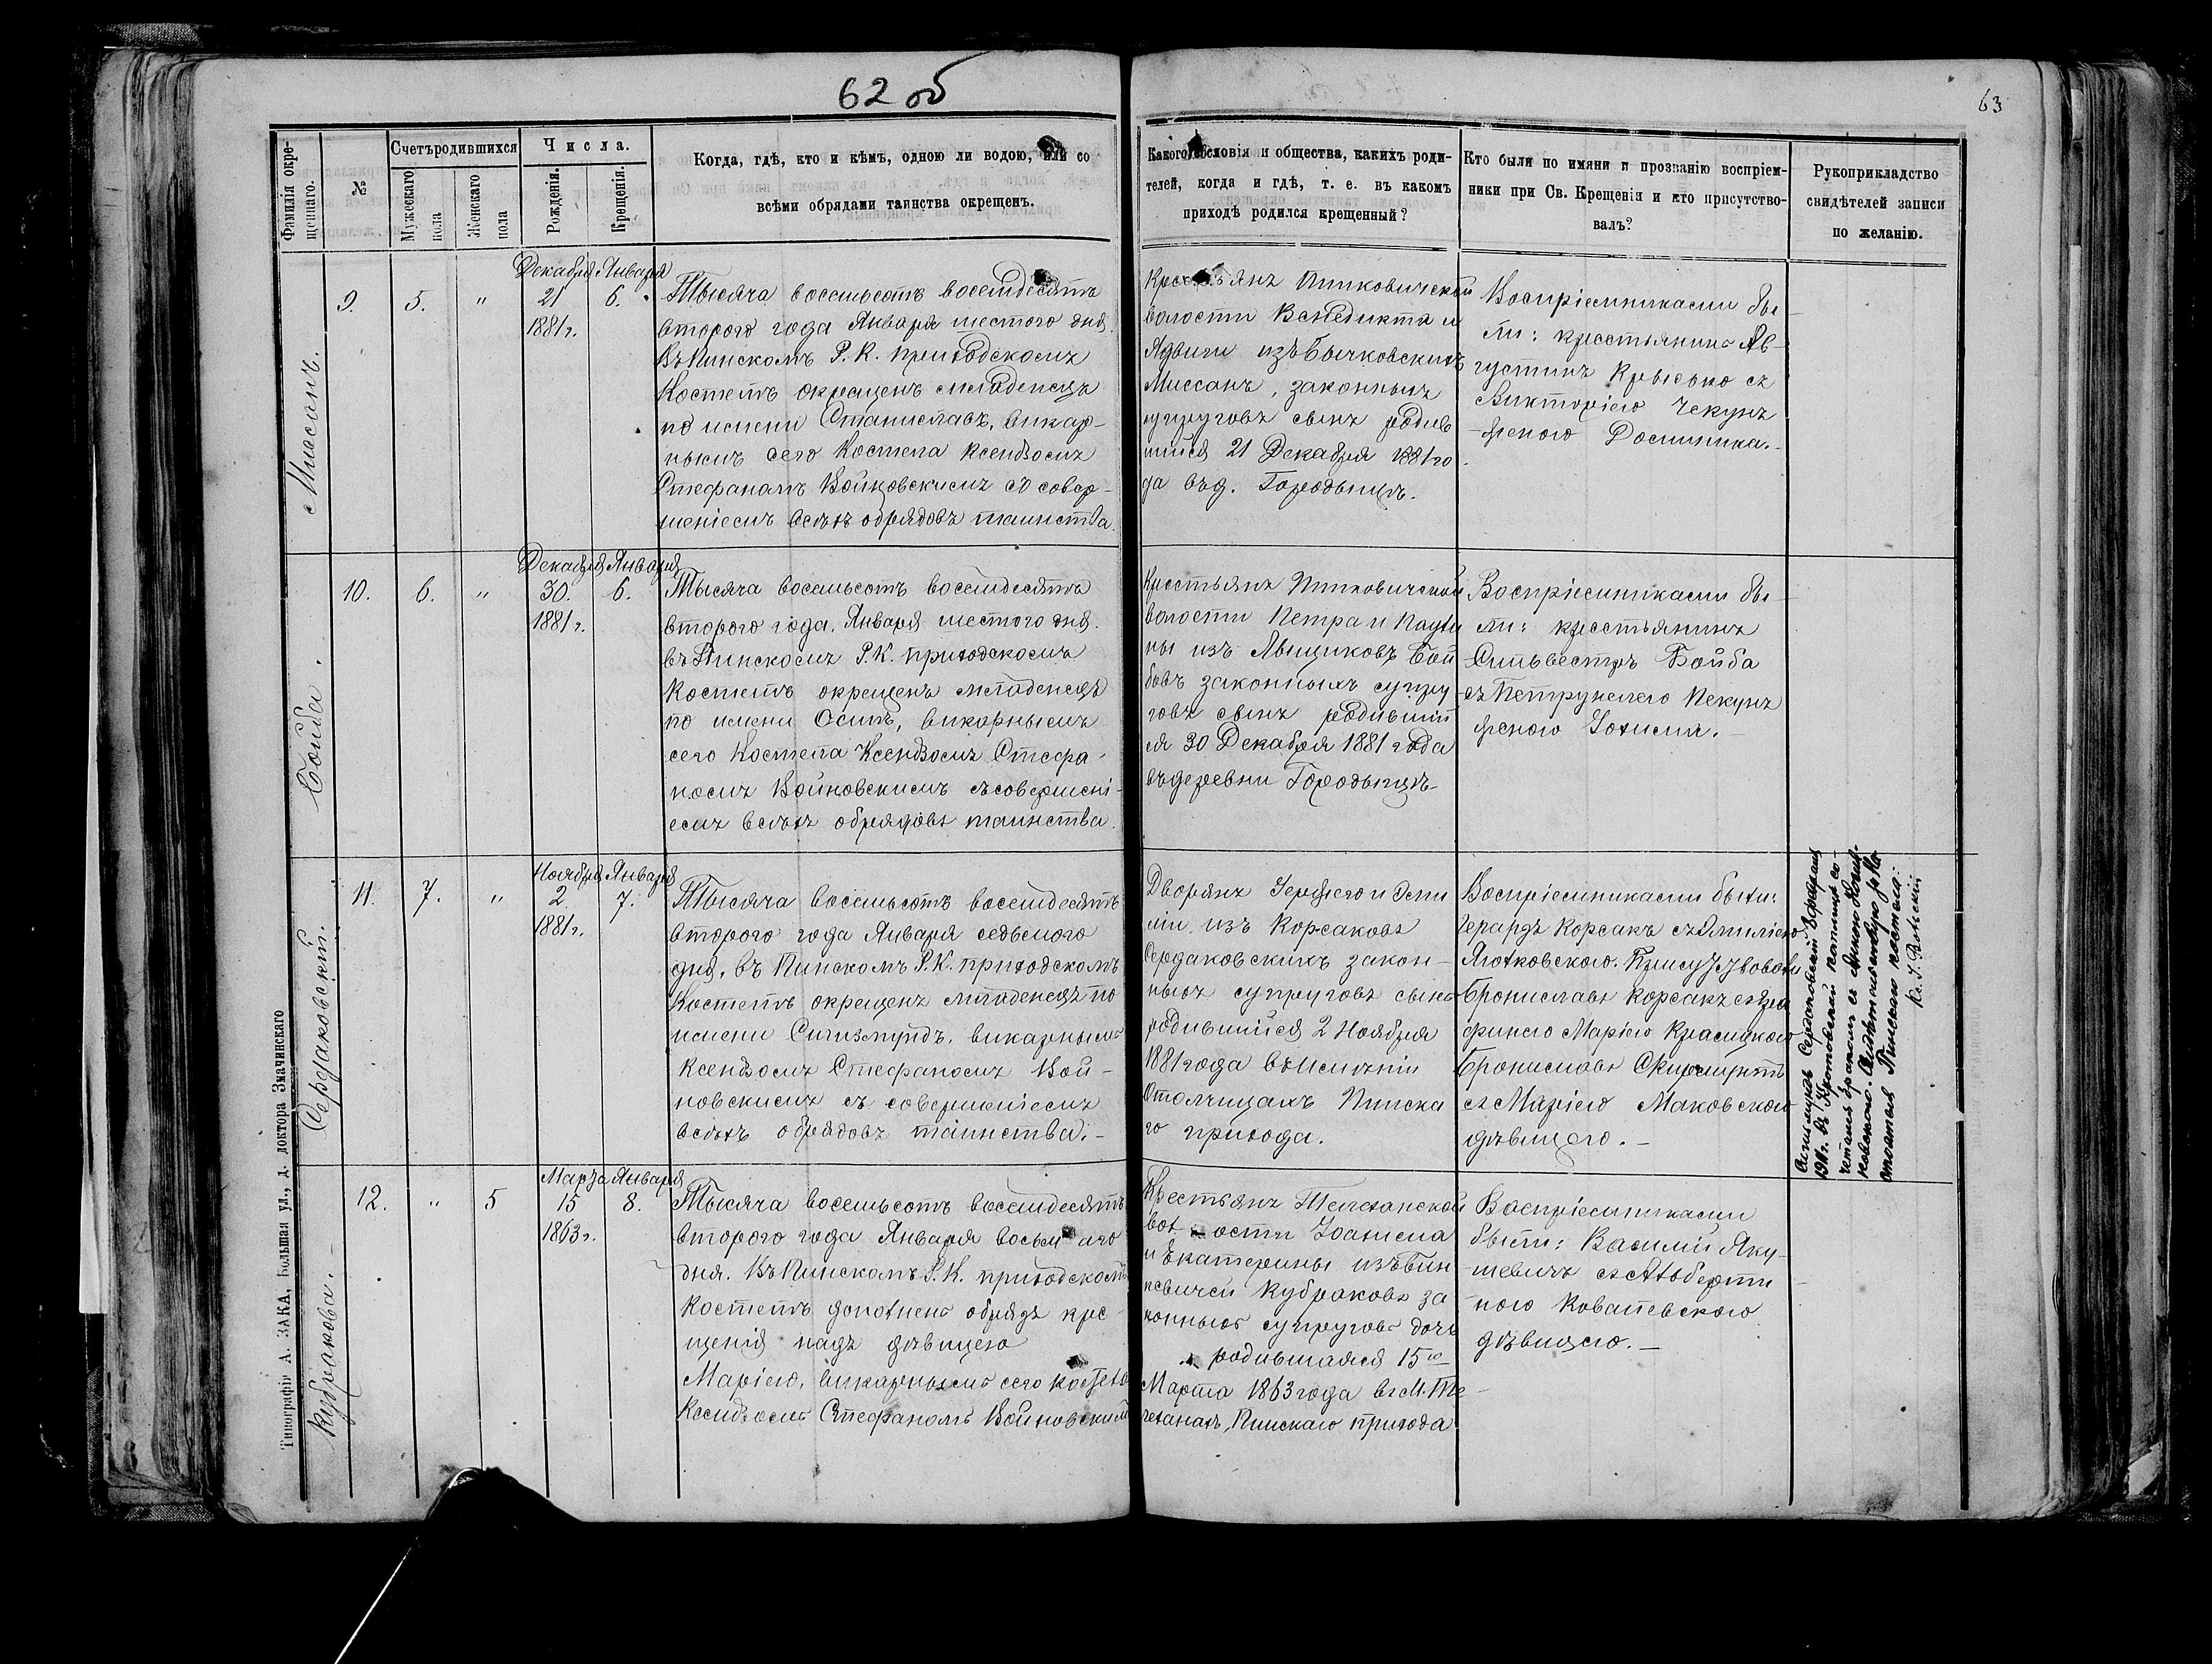 62 об
63
Фамилія окре-
щеннаго.
№
Счетъ родившихся
Мужескаго
пола
Женскаго
пола
Числа.
Рожденія.
Крещенія.
Когда, гдѣ, кто и кѣмъ, одною ли водою, или со
всѣми обрядами таинства окрещенъ.
Какого сословія и общества, какихъ роди-
телей, когда и гдѣ, т. е. въ какомъ
приходѣ родился крещенный?
Кто были по имяни и прозванію воспріем-
ники при Св. Крещеніи и кто присутство-
валъ?
Рукоприкладство
свидѣтелей записи
по желанію.
Миссанъ.
9.
5.
"
Декабря
21
1881 г.
Января
6.
Тысяча восемьсотъ восемдесятъ
второго года Января шестого дня.
Въ Пинскомъ Р. К. приходскомъ
Костелѣ окрещенъ младенецъ
по имени Станиславъ, викар-
нымъ сего Костела Ксендзомъ
Стефаномъ Войновскимъ съ совер-
шеніемъ всѣхъ обрядовъ таинства.
Крестьянъ
волости Венедикта и
Ядвиги изъ Бычковскихъ
Миссанъ, законныхъ
супруговъ сынъ родив
шійся 21 Декабря 1881 го
да въ д. Городыщѣ.
Воспріемниками бы-
ли: крестьянинъ Ав-
густинъ съ
Викторіею Чекунъ
женою Доминика.
Бойба.
10.
6.
"
Декабря
30.
1881 г.
Января
6.
Тысяча восемьсотъ восемдесятъ
второго года, Января шестого дня.
въ Пинскомъ Р. К. приходскомъ
Костелѣ окрещенъ младенецъ
по имени Осипъ, викарнымъ
сего Костела Ксендзомъ Стефа-
номъ Войновскимъ съ совершені-
емъ всѣхъ обрядовъ таинства.
Крестьянъ
волости Петра и Паули
ны изъ Бой
бовъ законныхъ супру
говъ сынъ родившій
ся 30 Декабря 1881 года
въ деревни Городыщѣ
Воспріемниками бы-
ли: крестьянинъ
Сильвестръ Бойба
съ Петрунелею Пекунъ
женою Іохима.
Сердаковскій.
11.
7.
"
Ноября
2.
1881 г.
Января
7.
Тысяча восемьсотъ восемдесятъ
второго года Января седьмого
дня, въ Пинскомъ Р. К. приходскомъ
Костелѣ окрещенъ младенецъ по
имени Сигизмундъ, викарнымъ
Ксендзомъ Стефаномъ Вой-
новскимъ съ совершеніемъ
всѣхъ обрядовъ таинства.
Дворянъ
изъ Корсаковъ
Сердаковскихъ закон-
ныхъ супруговъ сынъ
родившійся 2 Ноября
1881 года въ имѣніи
Столчицахъ Пинска
го прихода.
Воспріемниками были:
Герардъ Корсакъ съ Эмиліею
Брониславъ Корсакъ съ
Маріею Красицкою
Брониславъ Скирмунтъ
съ Маріею Маковскою
дѣвицею.
Сигизмундъ Сердаковскій
1911 г. въ
Пинскаго костела:
Кс. І.
Кубракова.
12.
"
5
Марта
15
1863 г.
Января
8.
Тысяча восемьсотъ восемдесятъ
второго года Января восьмаго
дня. Въ Пинскомъ Р. К. приходскомъ
Костелѣ дополненъ обрядъ кре-
щенія надъ дѣвицею
Маріею, викарнымъ сего костела
Ксендзомъ Стефаномъ Войновскимъ
Крестьянъ Телеханской
волости Іоахима
и Екатерины изъ Бин
кевичей Кубраковъ за
конныхъ супруговъ дочь
родившаяся 15го
Марта 1863 года въ М. Те-
леханахъ, Пинскаго прихода.
Воспріемниками
были: Василій Яку-
шевичъ съ Альберти
ною Ковалевскою
дѣвицею.
Типографія А. ЗАКА, Большая ул., д. доктора Значинскаго